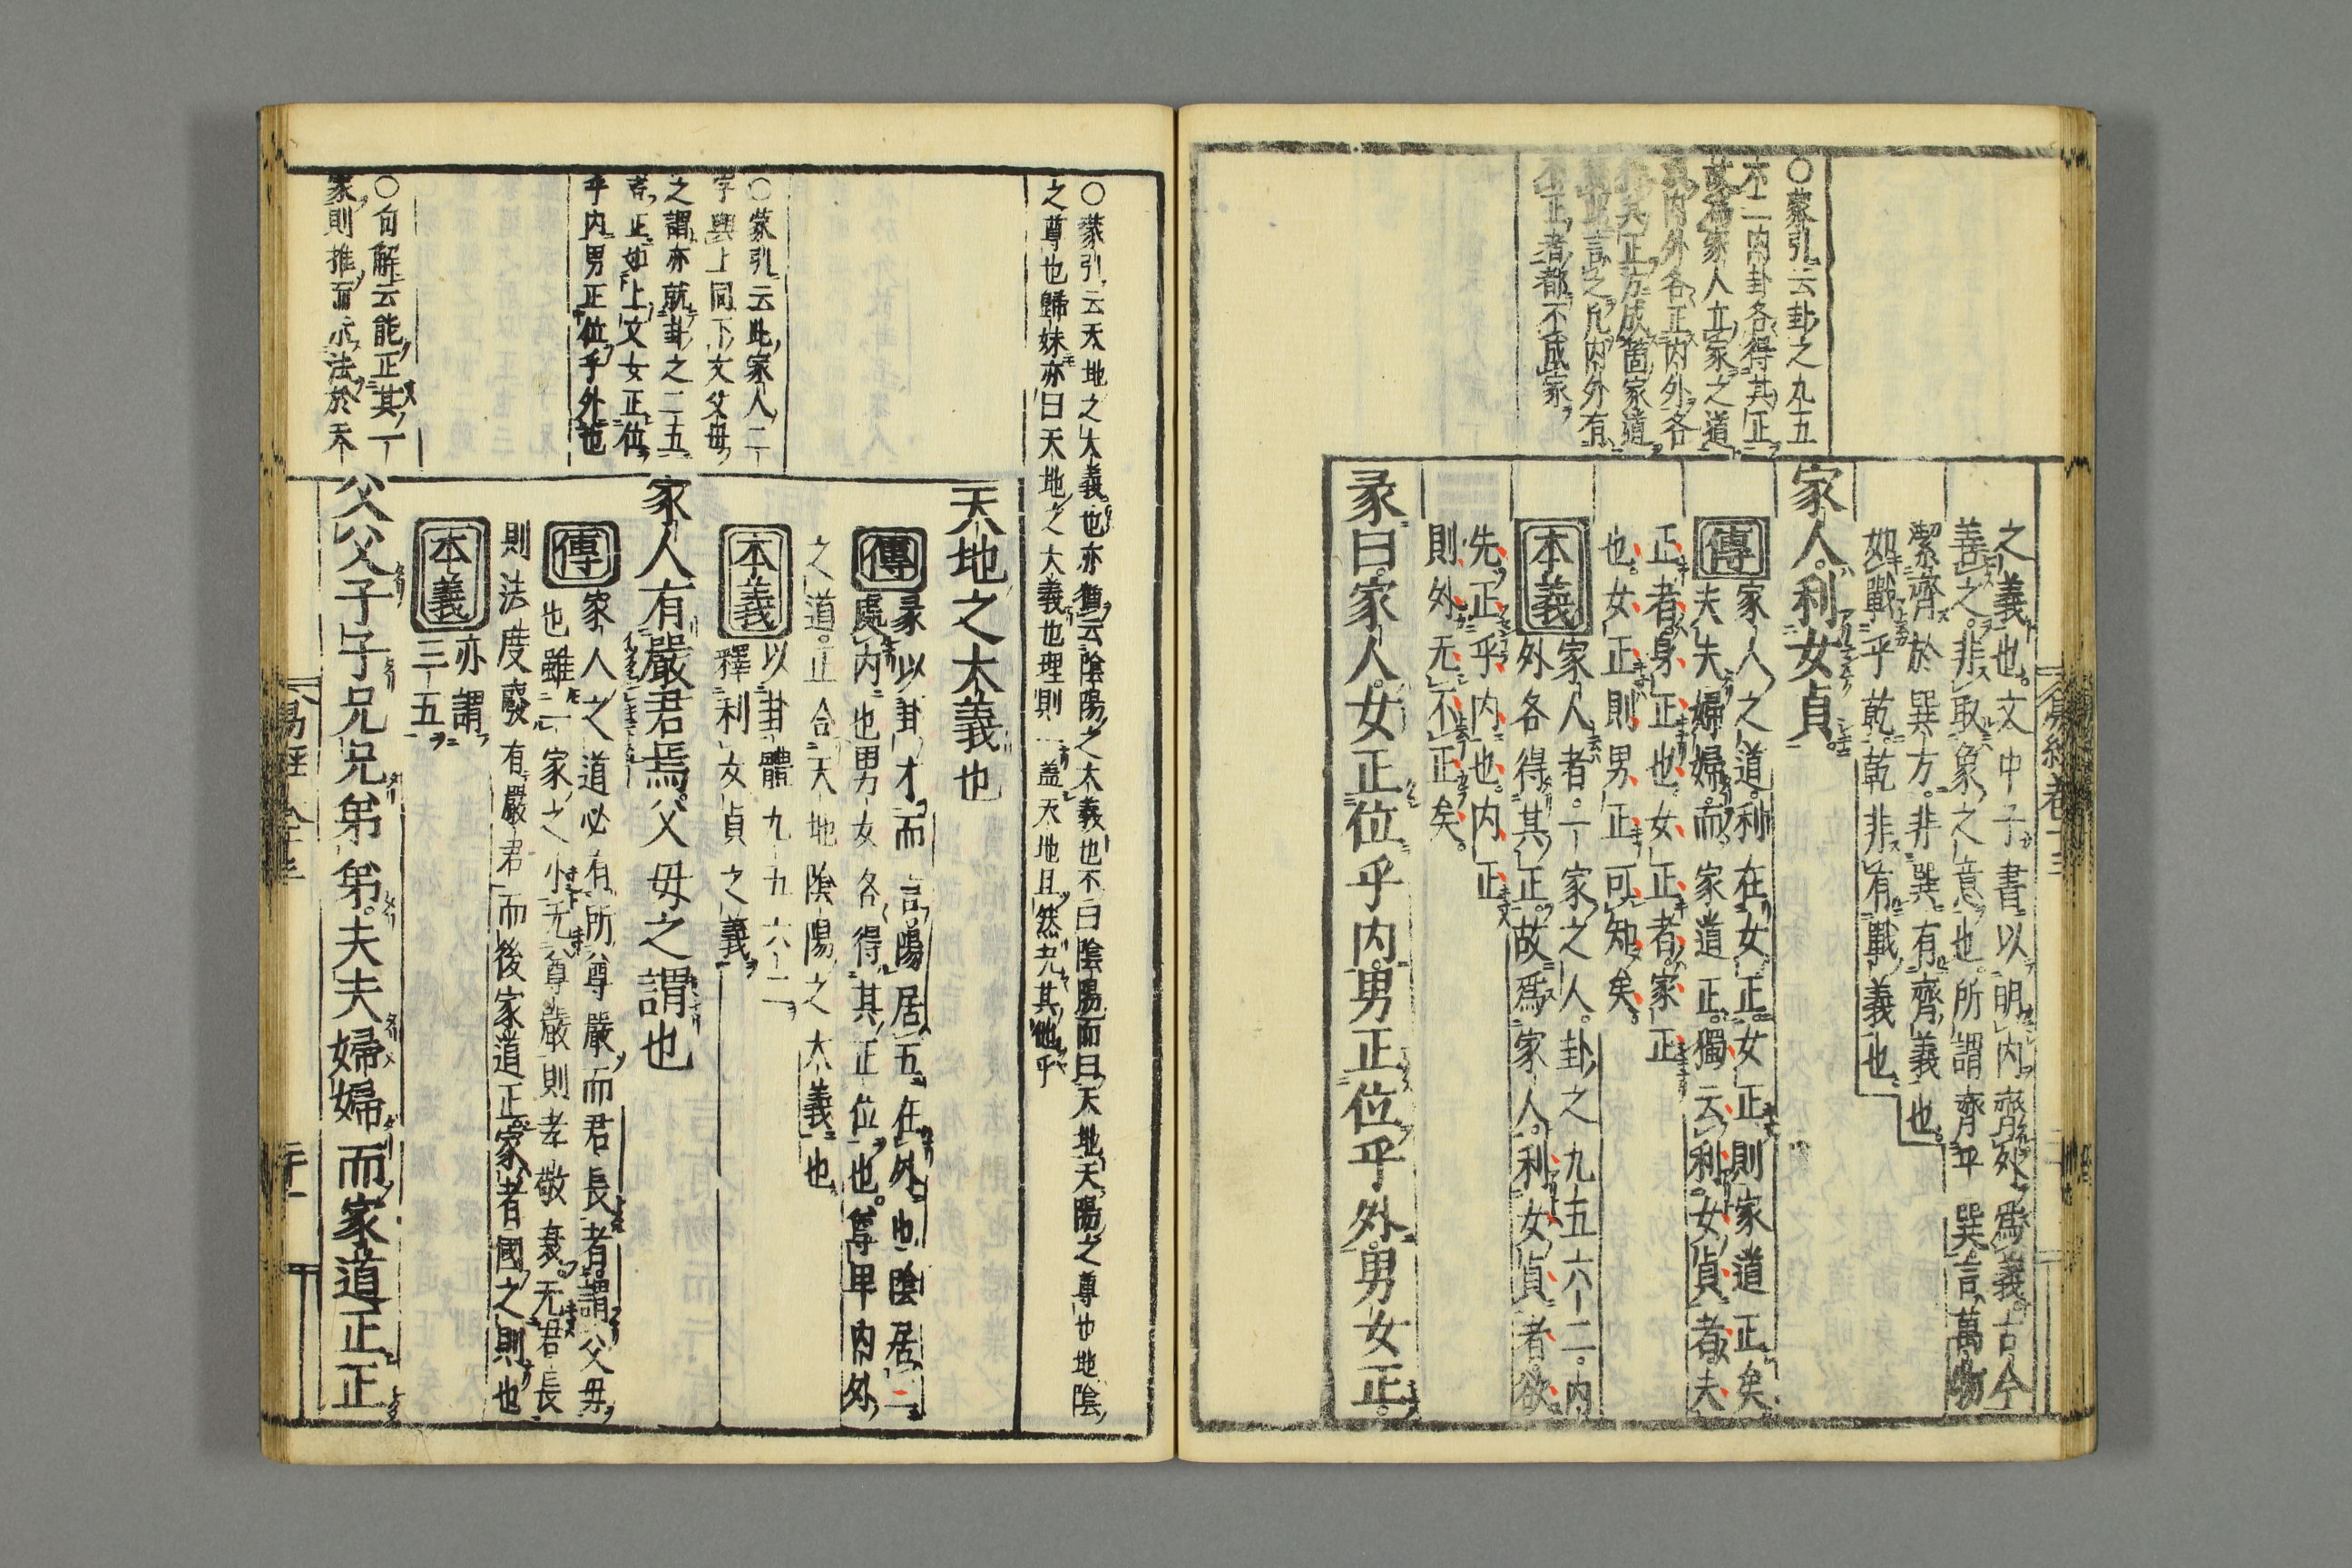 之義也。文中子書以明内齊外爲義。古今
善之。非取象之意也。所謂齊乎巽。言萬物
潔齊於巽方。非巽有齊義也。
如戰乎乾。乾非有戰義也
家人。利女貞。
傳
家人之道。利在女正。女正則家道正矣
夫夫婦婦。而家道正。獨云利女貞者。夫
正者。身正也。女正者。家正
也。女正則男正可知矣。
本義
家人者。一家之人。卦之九五六二。内
外各得其正。故爲家人。利女貞者。欲
先正乎内也。内正
則外无不正矣。
彖曰。家人。女正位乎内。男正位乎外。男女正。
○蒙引云卦之九五
六二内卦各得其正
故爲家人立家之道
内外各正内外各
其正方成箇家道
言之凡内外有
不正者都不成家
天地之大義也
○蒙引云天地之大義也亦猶云陰陽之大義也不曰陰陽而曰天地天陽之尊也地陰
之尊也歸妹亦曰天地之大義也理則一盖天地且然况其他乎
傳
彖以卦才而言。陽居五在外也。陰居二
處内也。男女各得其正位也。尊卑内外
之道。正合天地陰陽之大義也
本義
以卦體九五六二
釋利女貞之義
家人有嚴君焉。父母之謂也
傳
家人之道必有所尊嚴而君長者。謂父母
也雖一家之小。无尊嚴則孝敬衰。无君長
則法度廢有嚴君而後家道正。家者國之則也
本義
亦謂
二五
父父子子兄兄弟弟。夫夫婦婦而家道正正
○蒙引云此家人二
字與上同下文父母
之謂亦就卦之二五
者正如上文女正位
乎内男正位乎外也
○句解云能正其一
家則推而示法於天
易經
卷十三